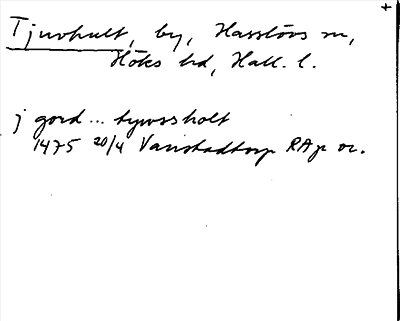 Tjuvhult, by, Hasslövs sn,
Höks hd, Hall. l.
j gord... tywssholt
1475 20/4 Vanstadtorp RAp or.